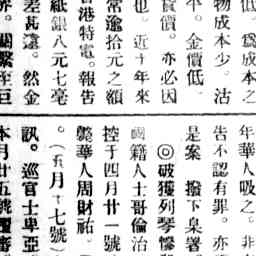 低。爲成本之
物成本少。沽
金價低。
價。亦必因
也。近十年來
常逾拾元之額
香港特電。報告
紙銀八元七毫
差甚遠。然金
界。關繫至巨
年華人吸之。非
告不認有罪。亦
是案 撥下臬署。
◎破獲列琴慘
國籍人士哥倫治
控于四月廿一號
斃華人周財祐。
。(五月十七號)
訊。巡官士卑亞
本月廿五號覆審